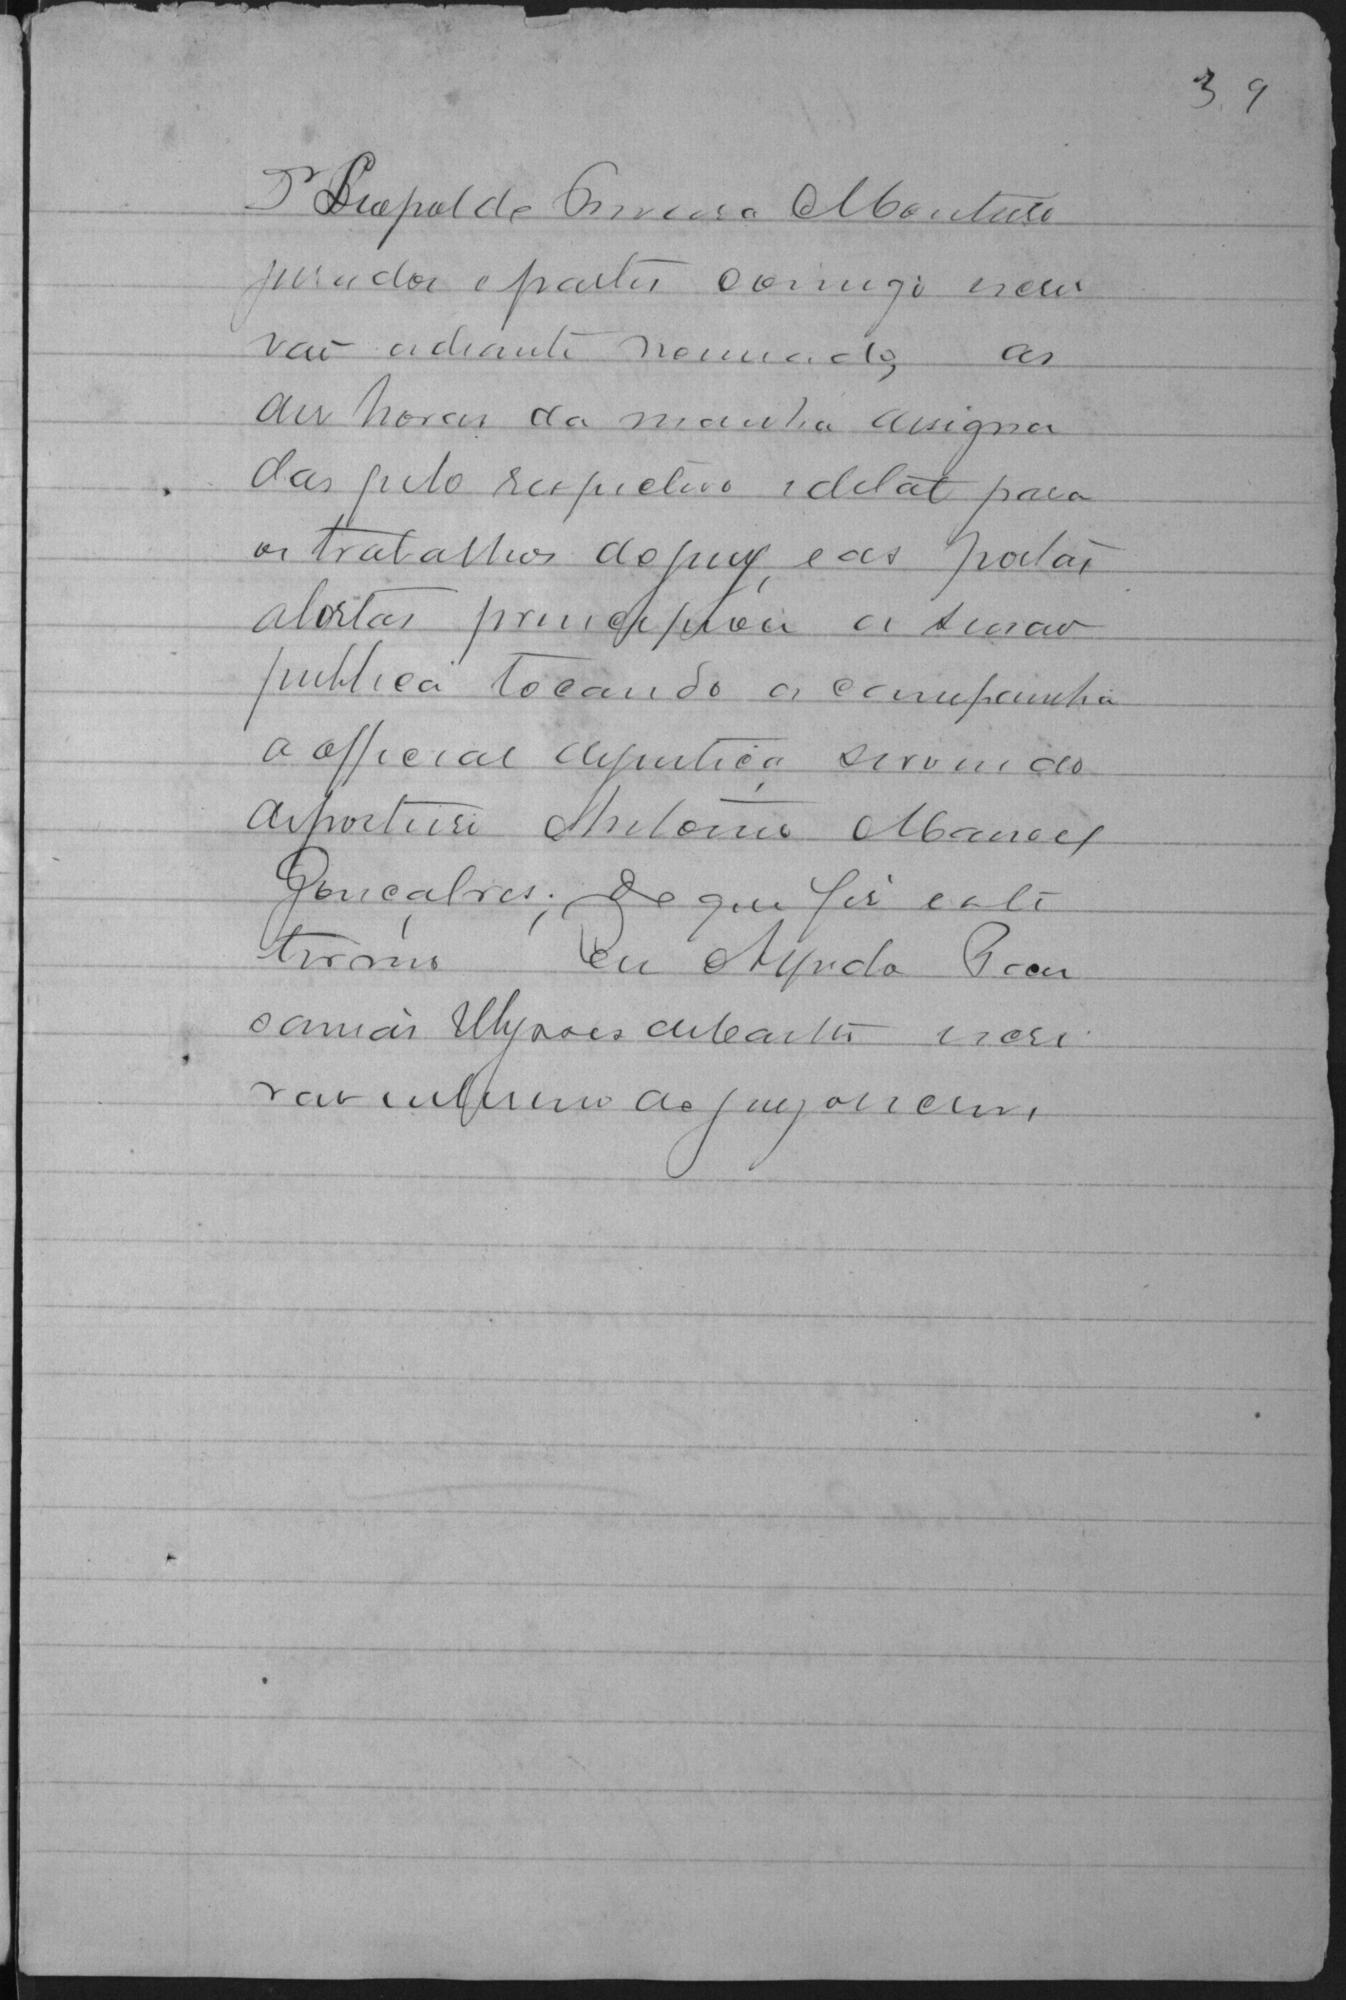 39
Dr Leopoldo Ferreira Monteiro
jurados e partes comigo escri
vão adiante nomeado, as
des horas da manhã designa
das pelo respectivo edital para
os trabalhos do jury, e as portas
abertas principiou a sessão
publica tocando a campanhia
o official de justiça servindo
de porteiro Antonio Manoel
Gonçalves; De que fis este
termo Eu Alfredo
Ulysses de Castro escri
vão interino do jury o escrevi